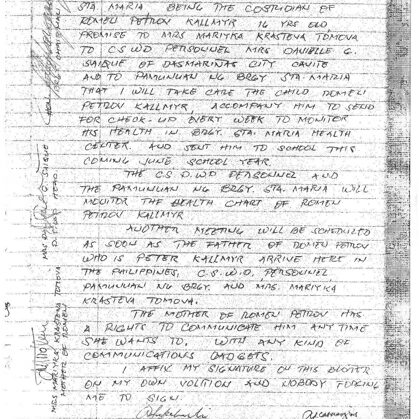 STA MARIA BEING THE COSTUDIAN OF
ROMEN PETROV KALLMYR 16 YRS OLD
PROMISE TO MRS MARIYKA KRASTEVA TOMOVA
TO C.S.W.D PERSONNEL MRS DANIELLE G.
SAIQUE OF DASMARIÑAS CITY CAVITE
AND TO PAMUNUAN NG BRGY STA. MARIA
THAT I WILL TAKE CARE THE CHILD ROMEN
PETROV KALLMYR, ACCOMPANY HIM TO SEND
FOR CHECK-UP EVERY WEEK TO MONITOR
HIS HEALTH IN BRGY. STA. MARIA HEALTH
CENTER. AND SENT HIM TO SCHOOL THIS
COMING JUNE SCHOOL YEAR.
THE C.S.W.D PERSONNEL AND
THE PAMUNUAN NG BRGY. STA. MARIA WILL
MONITOR THE HEALTH CHART OF ROMEN
PETROV KALLMYR
ANOTHER MEETING WILL BE SCHEDULED
AS SOON AS THE FATHER OF ROMEN PETROV
WHO IS PETER KALLMYR ARRIVE HERE IN
THE PHILIPPINES, C.S.W.D. PERSONNEL
PAMUNUAN NG BRGY. AND MRS. MARIYKA
KRASTEVA TOMOVA.
THE MOTHER OF ROMEN PETROV HAS
A RIGHTS TO COMMUNICATE HIM ANY TIME
SHE WANTS TO. WITH ANY KIND OF
COMMUNICATIONS GADGETS.
I AFFIX MY SIGNATURE ON THIS BLOTTER
ON MY OWN VOLITION AND NOBODY FORCING
ME TO SIGN.
MRS MARIYKA KRASTEVA TOMOVA
MOTHER OF ROMEN